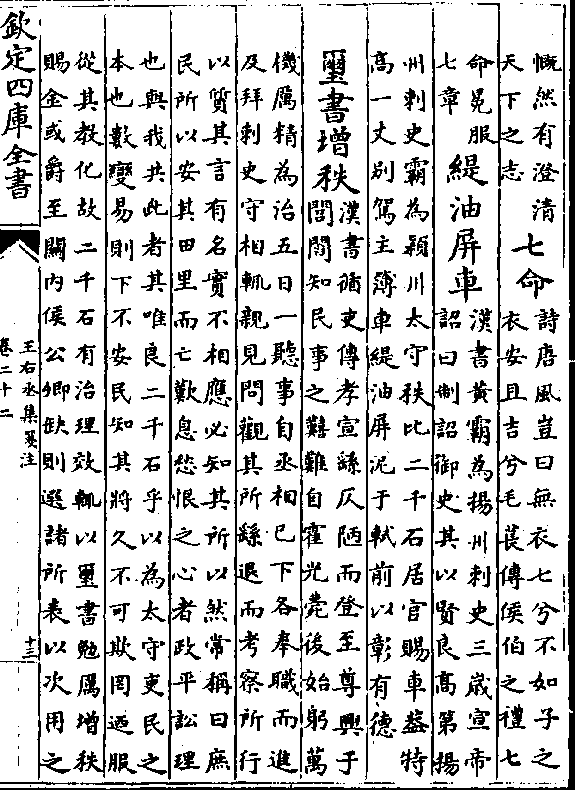 慨然有澄清
天下之志
七命
詩唐風豈曰無衣七兮不如子之
衣安且吉兮毛萇傳侯伯之禮七
命冕服
七章
緹油屏車
漢書黄霸為揚州刺史三歲宣帝
詔曰制詔御史其以賢良高第揚
州刺史霸為潁川太守秩比二千石居官賜車蓋特
高一丈别駕主簿車緹油屏泥于軾前以彰有德
璽書增秩
漢書循吏傳孝宣繇仄陋而登至尊興于
閭閻知民事之囏難自霍光薨後始躬萬
機厲精為治五日一聽事自丞相已下各奉職而進
及拜刺史守相輒親見問觀其所繇退而考察所行
以質其言有名實不相應必知其所以然常稱曰庶
民所以安其田里而亡歎息愁恨之心者政平訟理
也與我共此者其唯良二千石乎以為太守吏民之
本也數變易則下不安民知其將久不可欺罔迺服
從其教化故二千石有治理效輒以璽書勉厲增秩
賜金或爵至關内侯公卿缺則選諸所表以次用之
欽定四庫全書
王右丞集箋注
卷二十二
十三